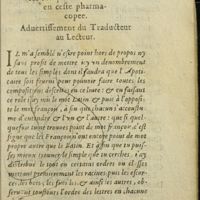 en ceste pharma-
copee.
Aduertissement du Traducteur
au Lecteur.
IL m'a semblé n'estre point hors de propos ny
sans profit de mettre icy vn denombrement
de tous les simples, dont il faudra que l'Apoti-
caire soit fourni pour pouuoir faire toutes les
compositions descrites en ce liure: & en faisant
ce role i'ay mis le mot Latin & puis à l'opposi-
te le mot françois, à fin que chacun s'accoustu-
me d'entendre & l'vn & l'autre: & si que quel-
quefois tu ne trouues point de mot françois, c'est
signe que les François n'ont encore point de mot
propre autre que le Latin. Et afin que tu puis-
ses mieux trouuer le simple que tu cerches, i'ay
distribué le tout en certains ordres ou il faut
mettant premierement les racines, puis les escor-
ces, les bois, les fueilles, & ainsi les autres, ob-
seruant tousiours l'ordre des lettres en chacune